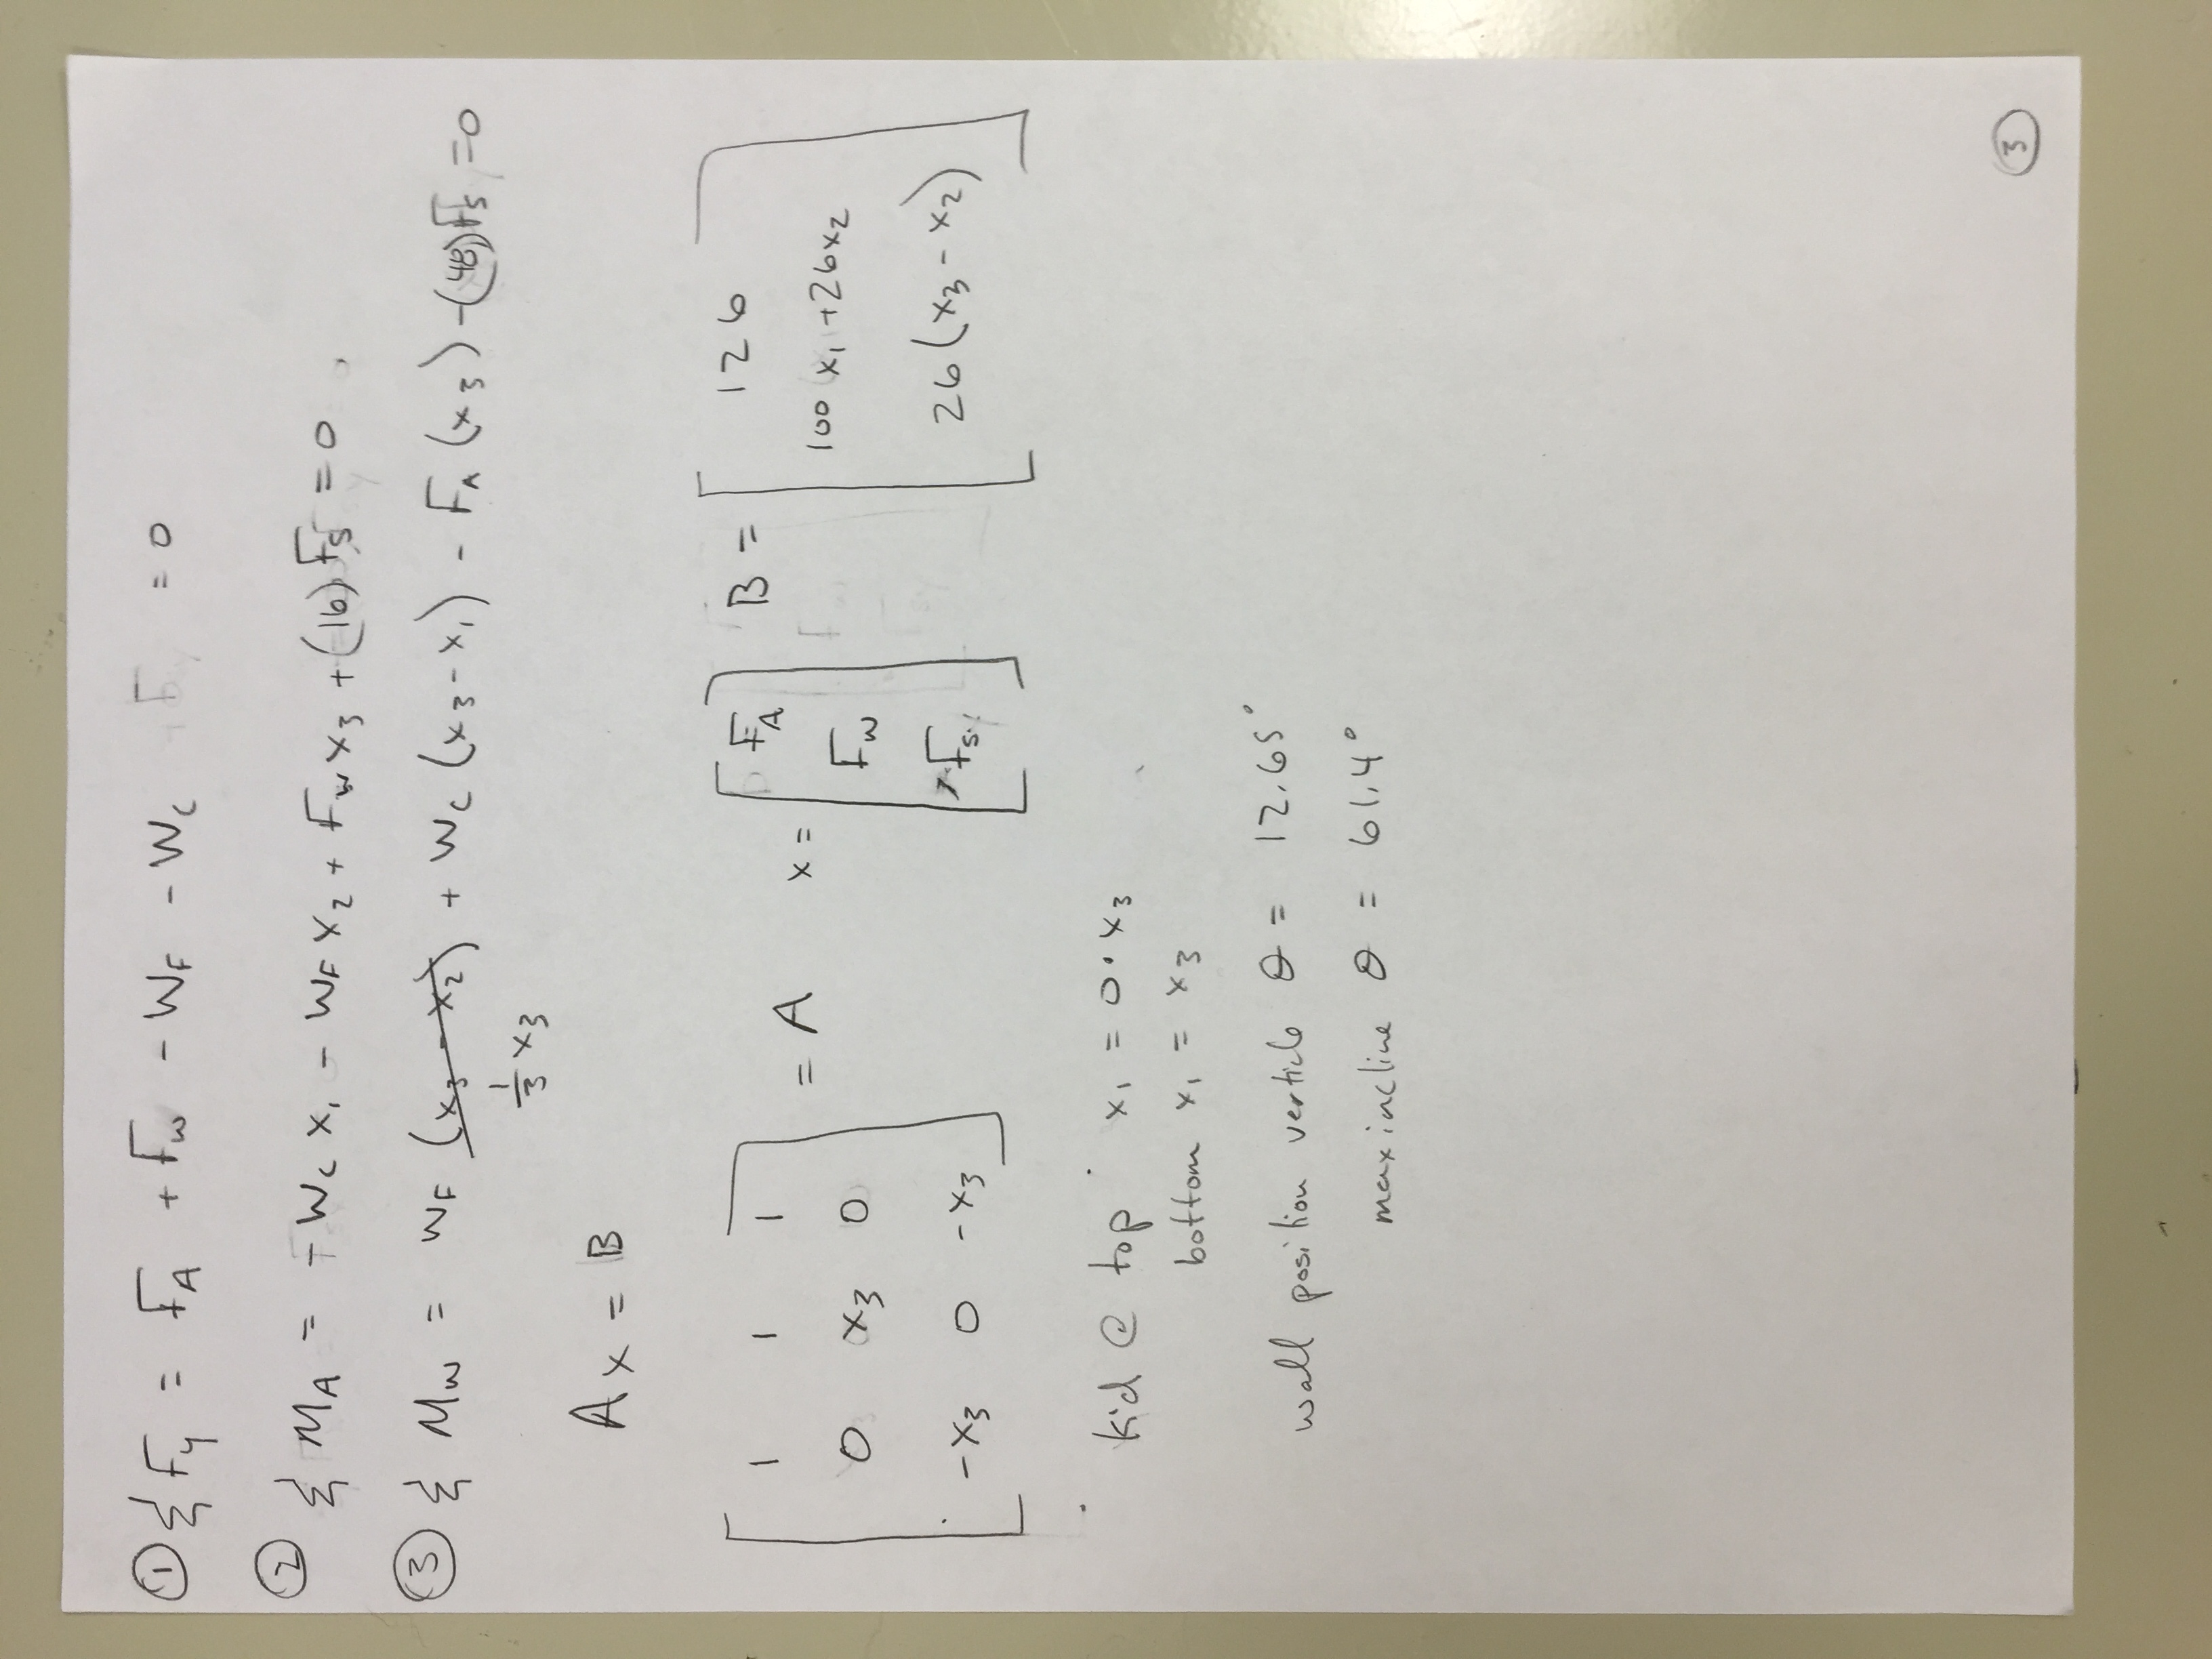 ① Σ F_y = F_A + F_w - W_F - W_C = 0
② Σ M_A = -W_C x_1 - W_F x_2 + F_w x_3 + (16) F_S = 0
③ Σ M_w = W_F (x_3 - x_2) + W_C (x_3 - x_1) - F_A (x_3) - (48) F_S = 0
1/3 x_3
Ax = B
[1 1 1; 0 x_3 0; -x_3 0 -x_3] = A x = [F_A; F_w; F_S] B = [126; 100 x_1 + 26 x_2; 26 (x_3 - x_2)]
kid @ top x_1 = 0 · x_3
bottom x_1 = x_3
wall position verticle θ = 12.65°
max incline θ = 61.4°
③